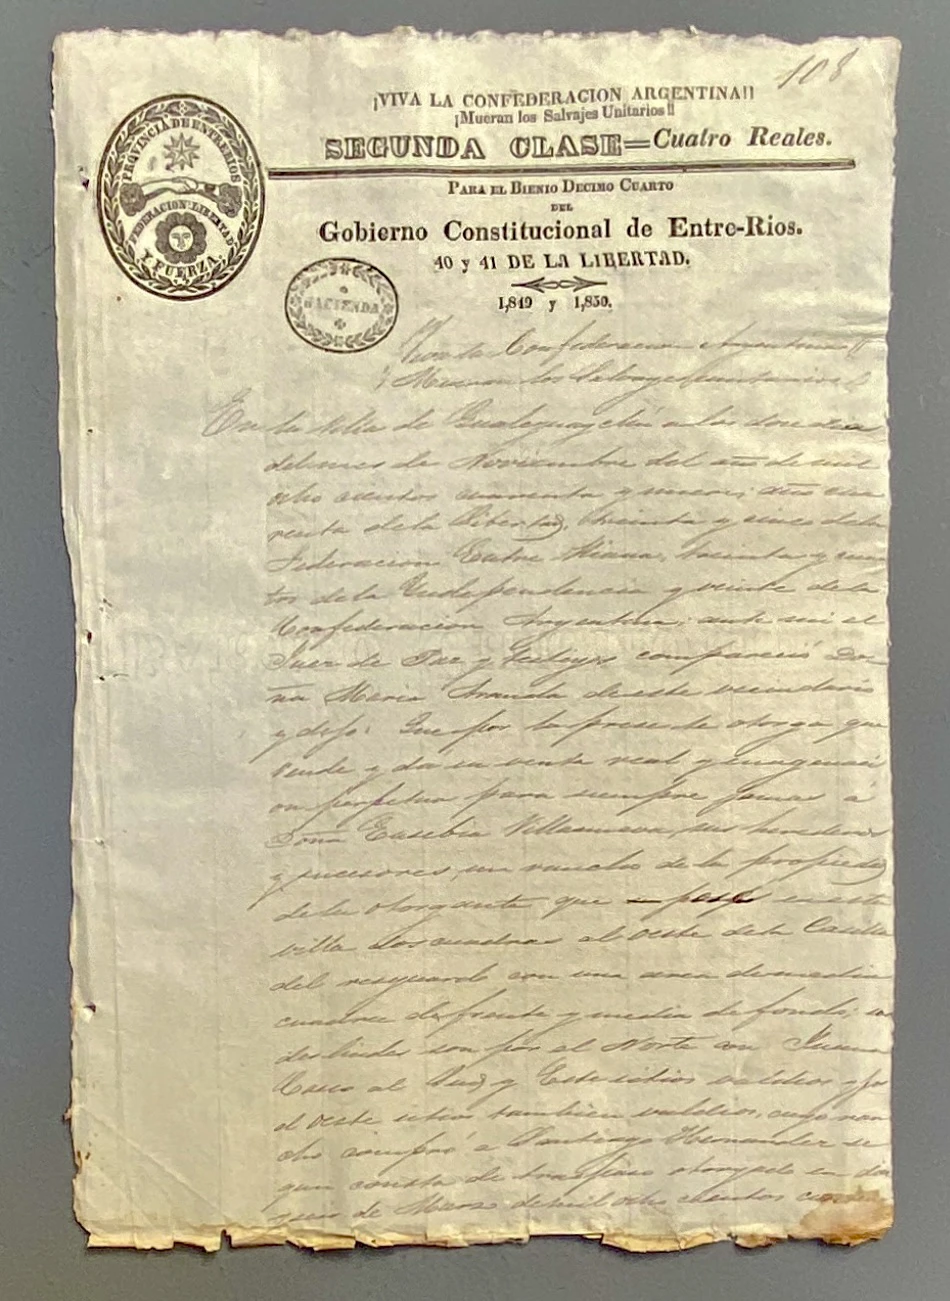 108
¡VIVA LA CONFEDERACION ARGENTINA!!
¡Mueran los Salvajes Unitarios!!
SEGUNDA CLASE=Cuatro Reales.
PROVINCIA DE ENTRE RIOS
FEDERACION LIBERTAD
Y FUERZA.
PARA EL BIENIO DECIMO CUARTO
DEL
Gobierno Constitucional de Entre-Rios.
40 y 41 DE LA LIBERTAD.
1,849 y 1,850.
HACIENDA
Viva la Confederacion Argentina!!
¡Mueran los Salvajes unitarios!
En la Villa de Gualeguaychú a los doce dias
del mes de Noviembre del año de mil
ocho cientos cuarenta y nueve, año cua
renta de la Libertad, treinta y cinco de la
Federacion Entre Riana, treinta y cua
tro de la Yndependencia y veinte de la
Confederacion Argentina: ante mi el
Juez de Paz y testigos compareció Do
ña Maria Aranda de este vecindario
y dijo: Que por la presente otorga que
vende y da en venta real y enagenaci
on perpetua para siempre jamas á
Doña Eusebia Villanueva, sus herederos
y sucesores, un rancho de la propiedad
de la otorgante que posee en esta
villa dos cuadras al oeste de la Casilla
del resguardo con una area de media
cuadra de frente y media de fondo; sus
deslindes son por el Norte con Juana
al Sud y Este sitios valdios y por
el Oeste sitios tambien valdios, cuyo ran
cho compró a Santiago Hernandez se
gun consta de traspaso otorgado en
de Marzo de mil ocho cientos